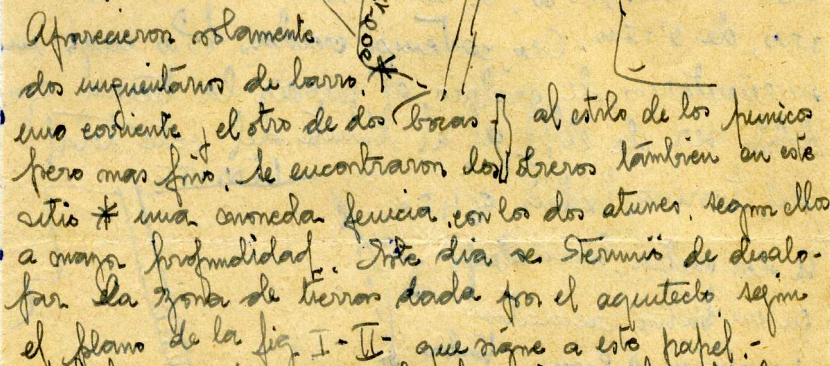 Aparecieron solamente
dos unguentarios de barro, *
uno corriente y el otro de dos bocas } al estilo de los punicos
pero mas fino. Se encontraron los obreros támbien en este
sitio * una moneda fenicia, con los dos atunes, segun ellos
a mayor profundidad. Este dia se terminó de desalo-
jar la zona de tierras dada por el aquitecto, segun
el plano de la fig I-II- que sigue a este papel.-